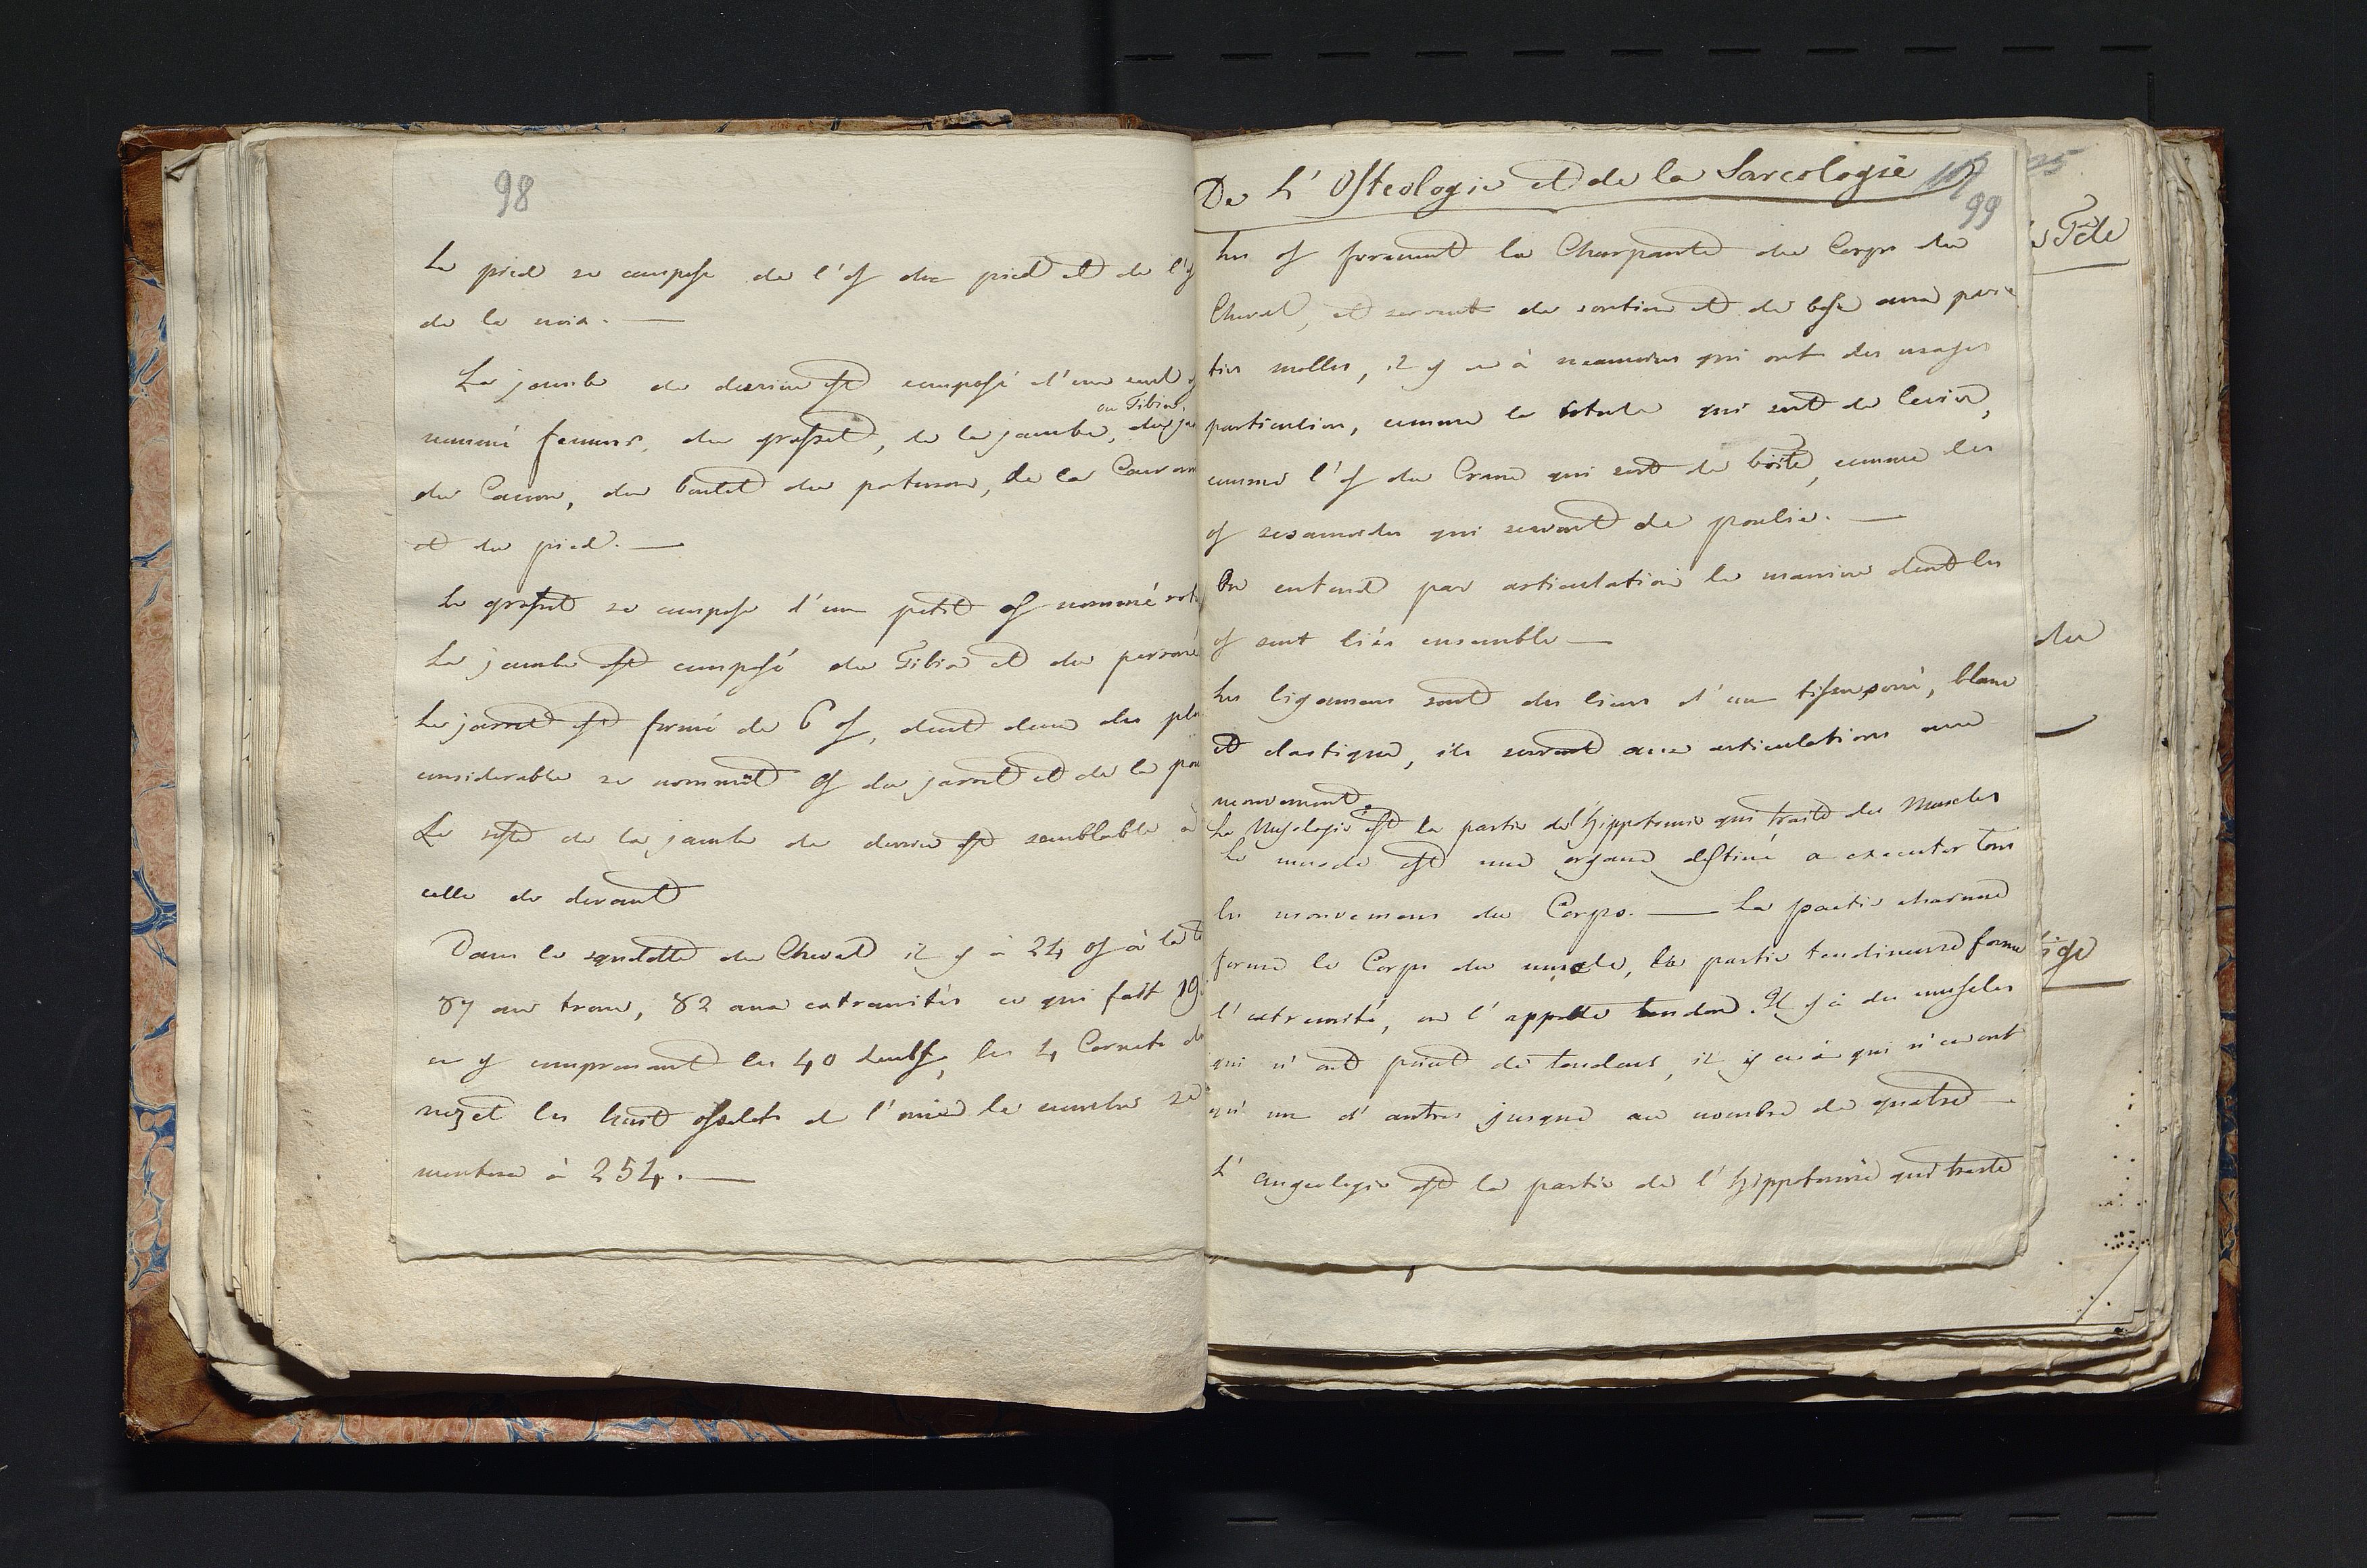 98
Le pied se compose de l'os du pied et de l'os
de la noix. —
La jambe de derriere est composé d'un seul
ou Tibia,
nommé femur, du grasset, de la jambe, du ja
du Canon, du boulet du paturon, de la Couron
et du pied. —
Le grasset se compose d'un petit os nommé rot
La jambe est composé du Tibia et du perroné
Le jarret est formé de 6 os, dont deux des plus
considerable se nommet os du jarret et de la pou
Le reste de la jambe de derriere est semblable à
celle de devant
Dans le squelette du Cheval il y à 24 os à la t
87 au tronc, 82 aux extremités ce qui fait 19
en y comprenant les 40 dents, les 4 Cornets du
nez et les huit osselets de l'ouie le nombre se
montera à 254. —
De L'Osteologie et de la Sarcologie
99
Les os forment la Charpente du Corps du
Cheval, et servent de soutien et de base aux par
ties molles, il y en à neanmoins qui ont des usages
particuliers, comme la rotule qui sert de levier,
comme l'os du Crane qui sert de boite, comme les
os sesamoides qui servent de poulie. —
On entend par articulation la maniere dont les
os sont liés ensemble —
Les ligamens sont des liens d'un tissu serré, blanc
et elastique, ils servent aux articulations aux
mouvement.
La Myologie est la partie de l'hippotomie qui traite des Muscles
Le muscle est une organe destiné a executer tous
les mouvemens du Corps. — La partie charnue
forme le Corps du muscle, la partie tendineuse forme
l'extremité, on l'appelle tendon. Il y à des muscles
qui n'ont point de tendons, il y en à qui n'en ont
qu'un d'autres jusque au nombre de quatre —
L'angeologie est la partie de l'hippotomie qui traite
25
Tête
du